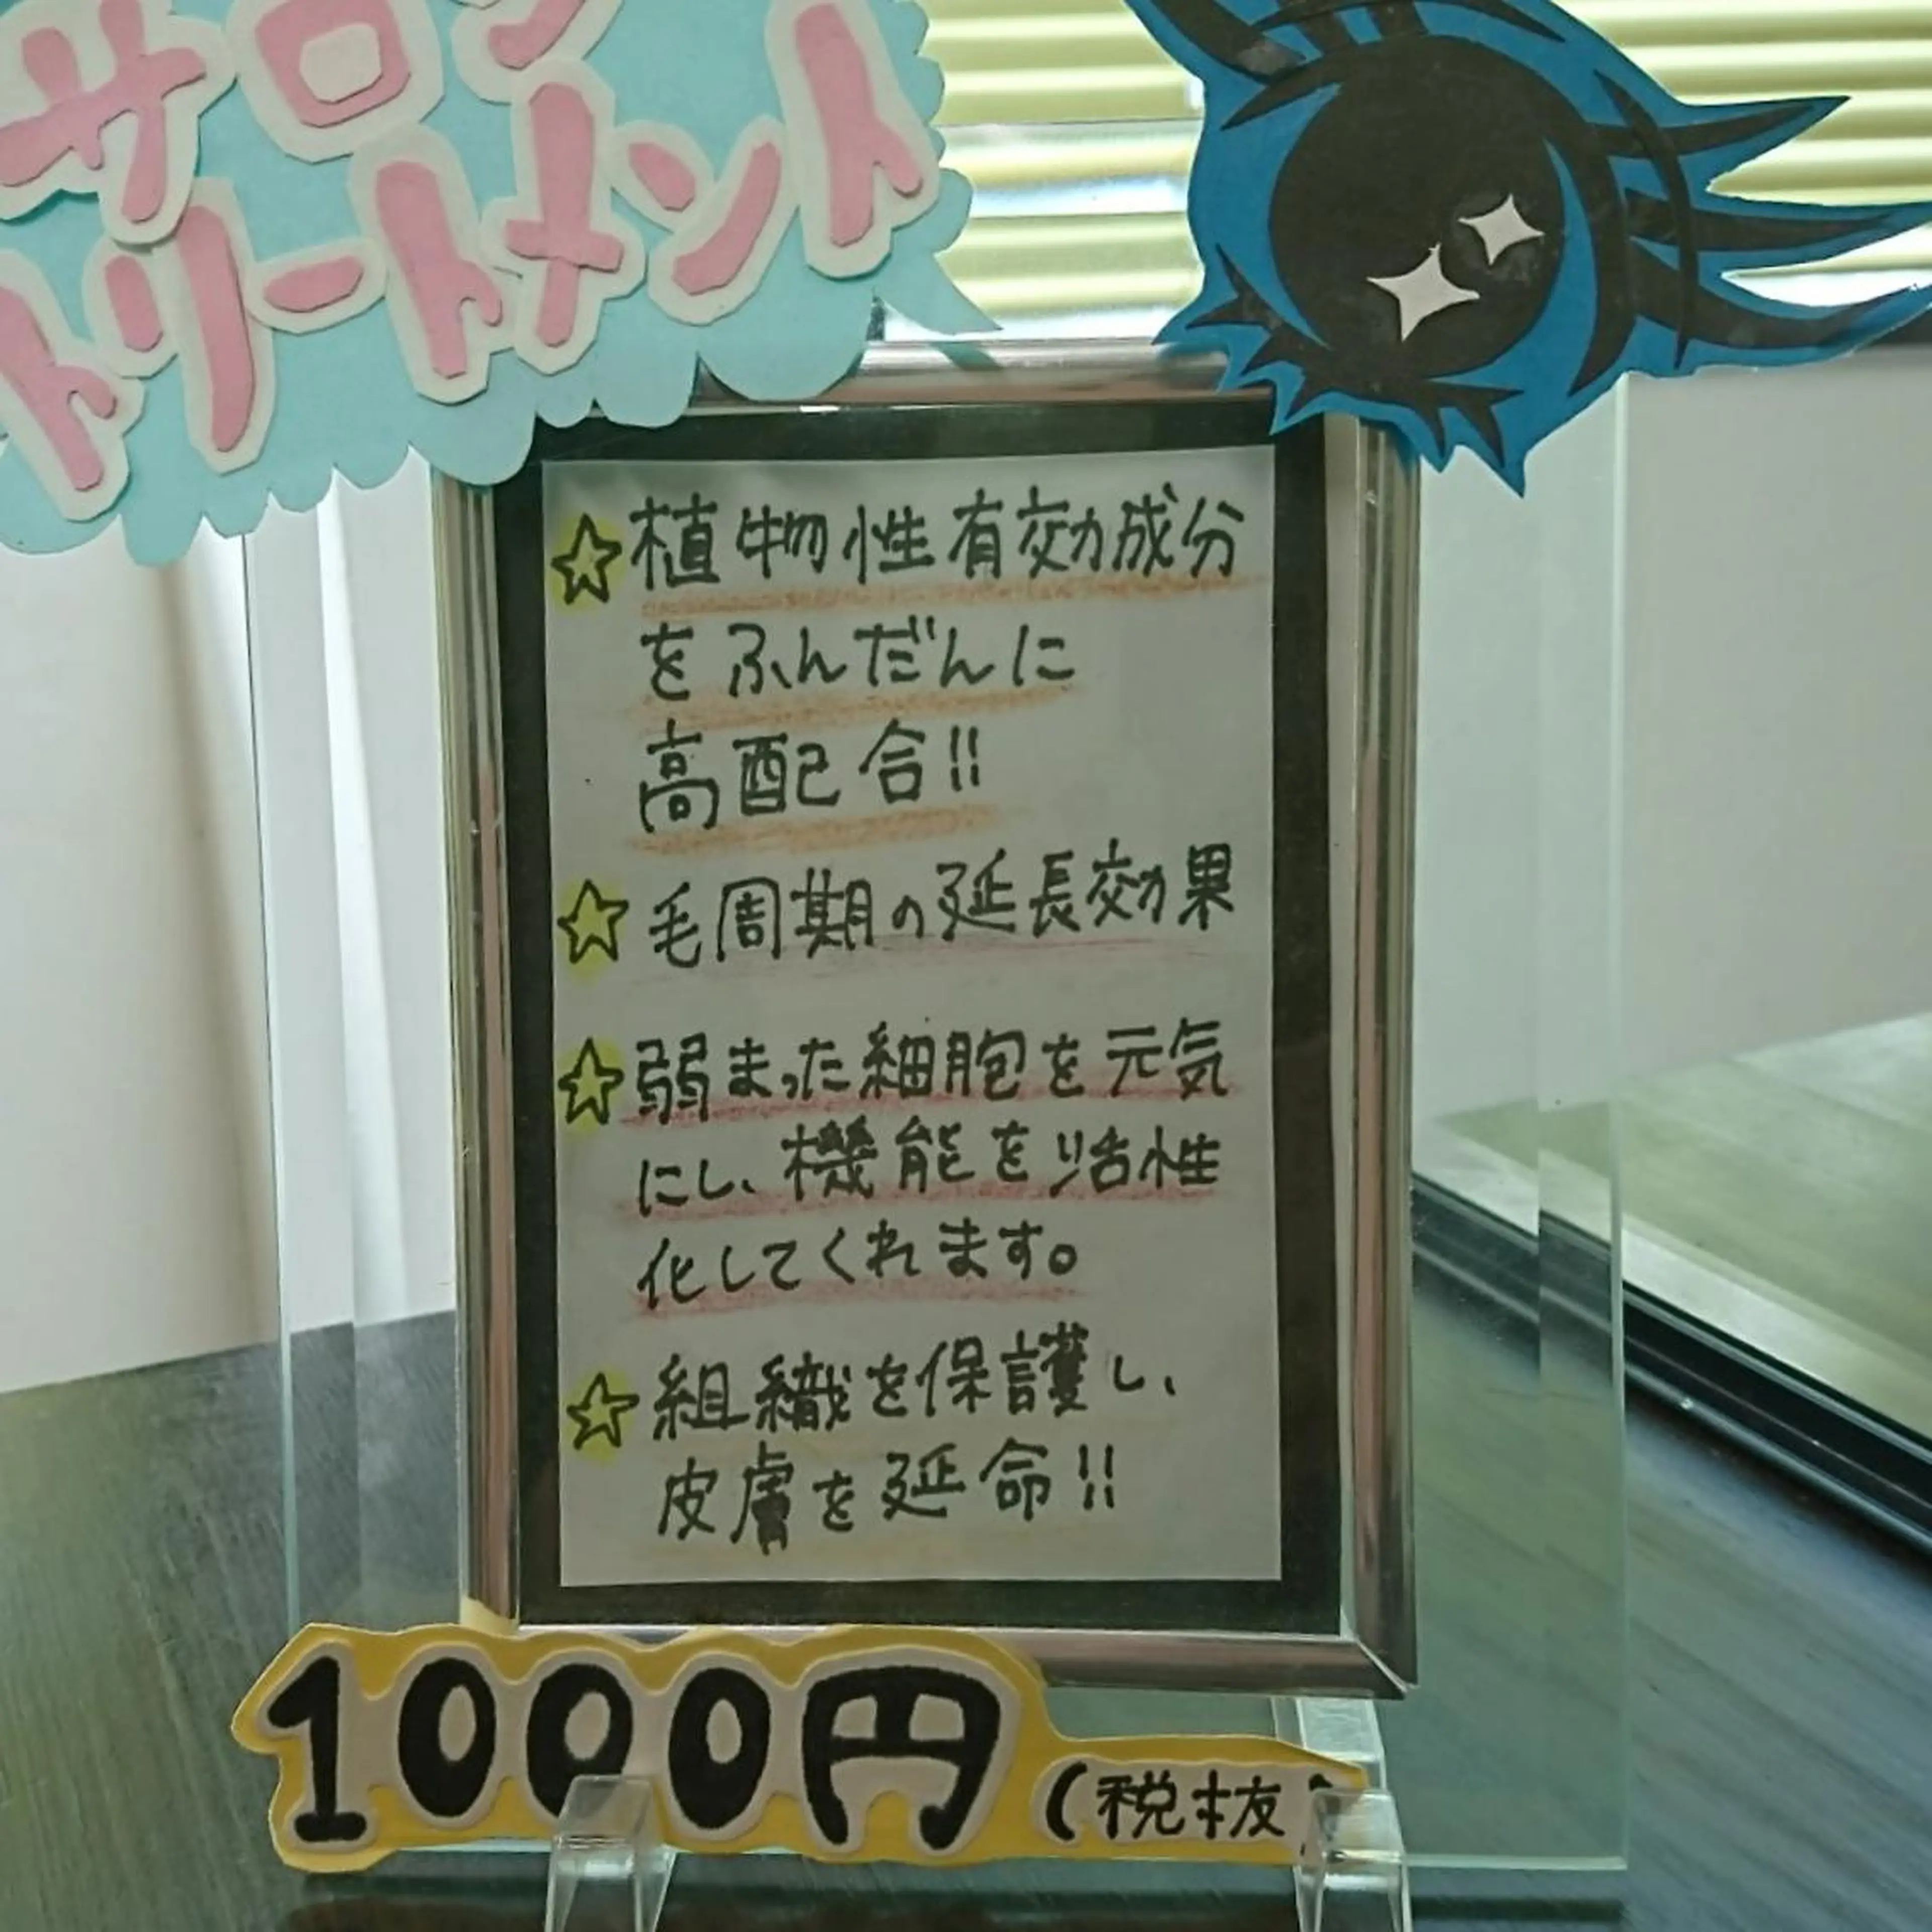 サロン
トリートメント
☆植物性有効成分
をふんだんに
高配合!!
☆毛周期の延長効果
☆弱まった細胞を元気
にし、機能を活性
化してくれます。
☆組織を保護し、
皮膚を延命!!
1000円(税抜)